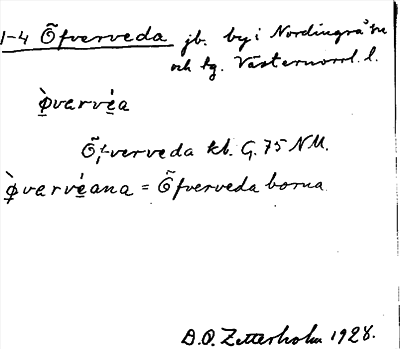 1-4 Öfverveda jb. by i Nordingrå sn
och tg. Västernorrl. l.
ø̀varvéa
Öfverveda kb. G. 75 NM.
ø̀varvéana = Öfverveda borna
D.O. Zetterholm 1928.